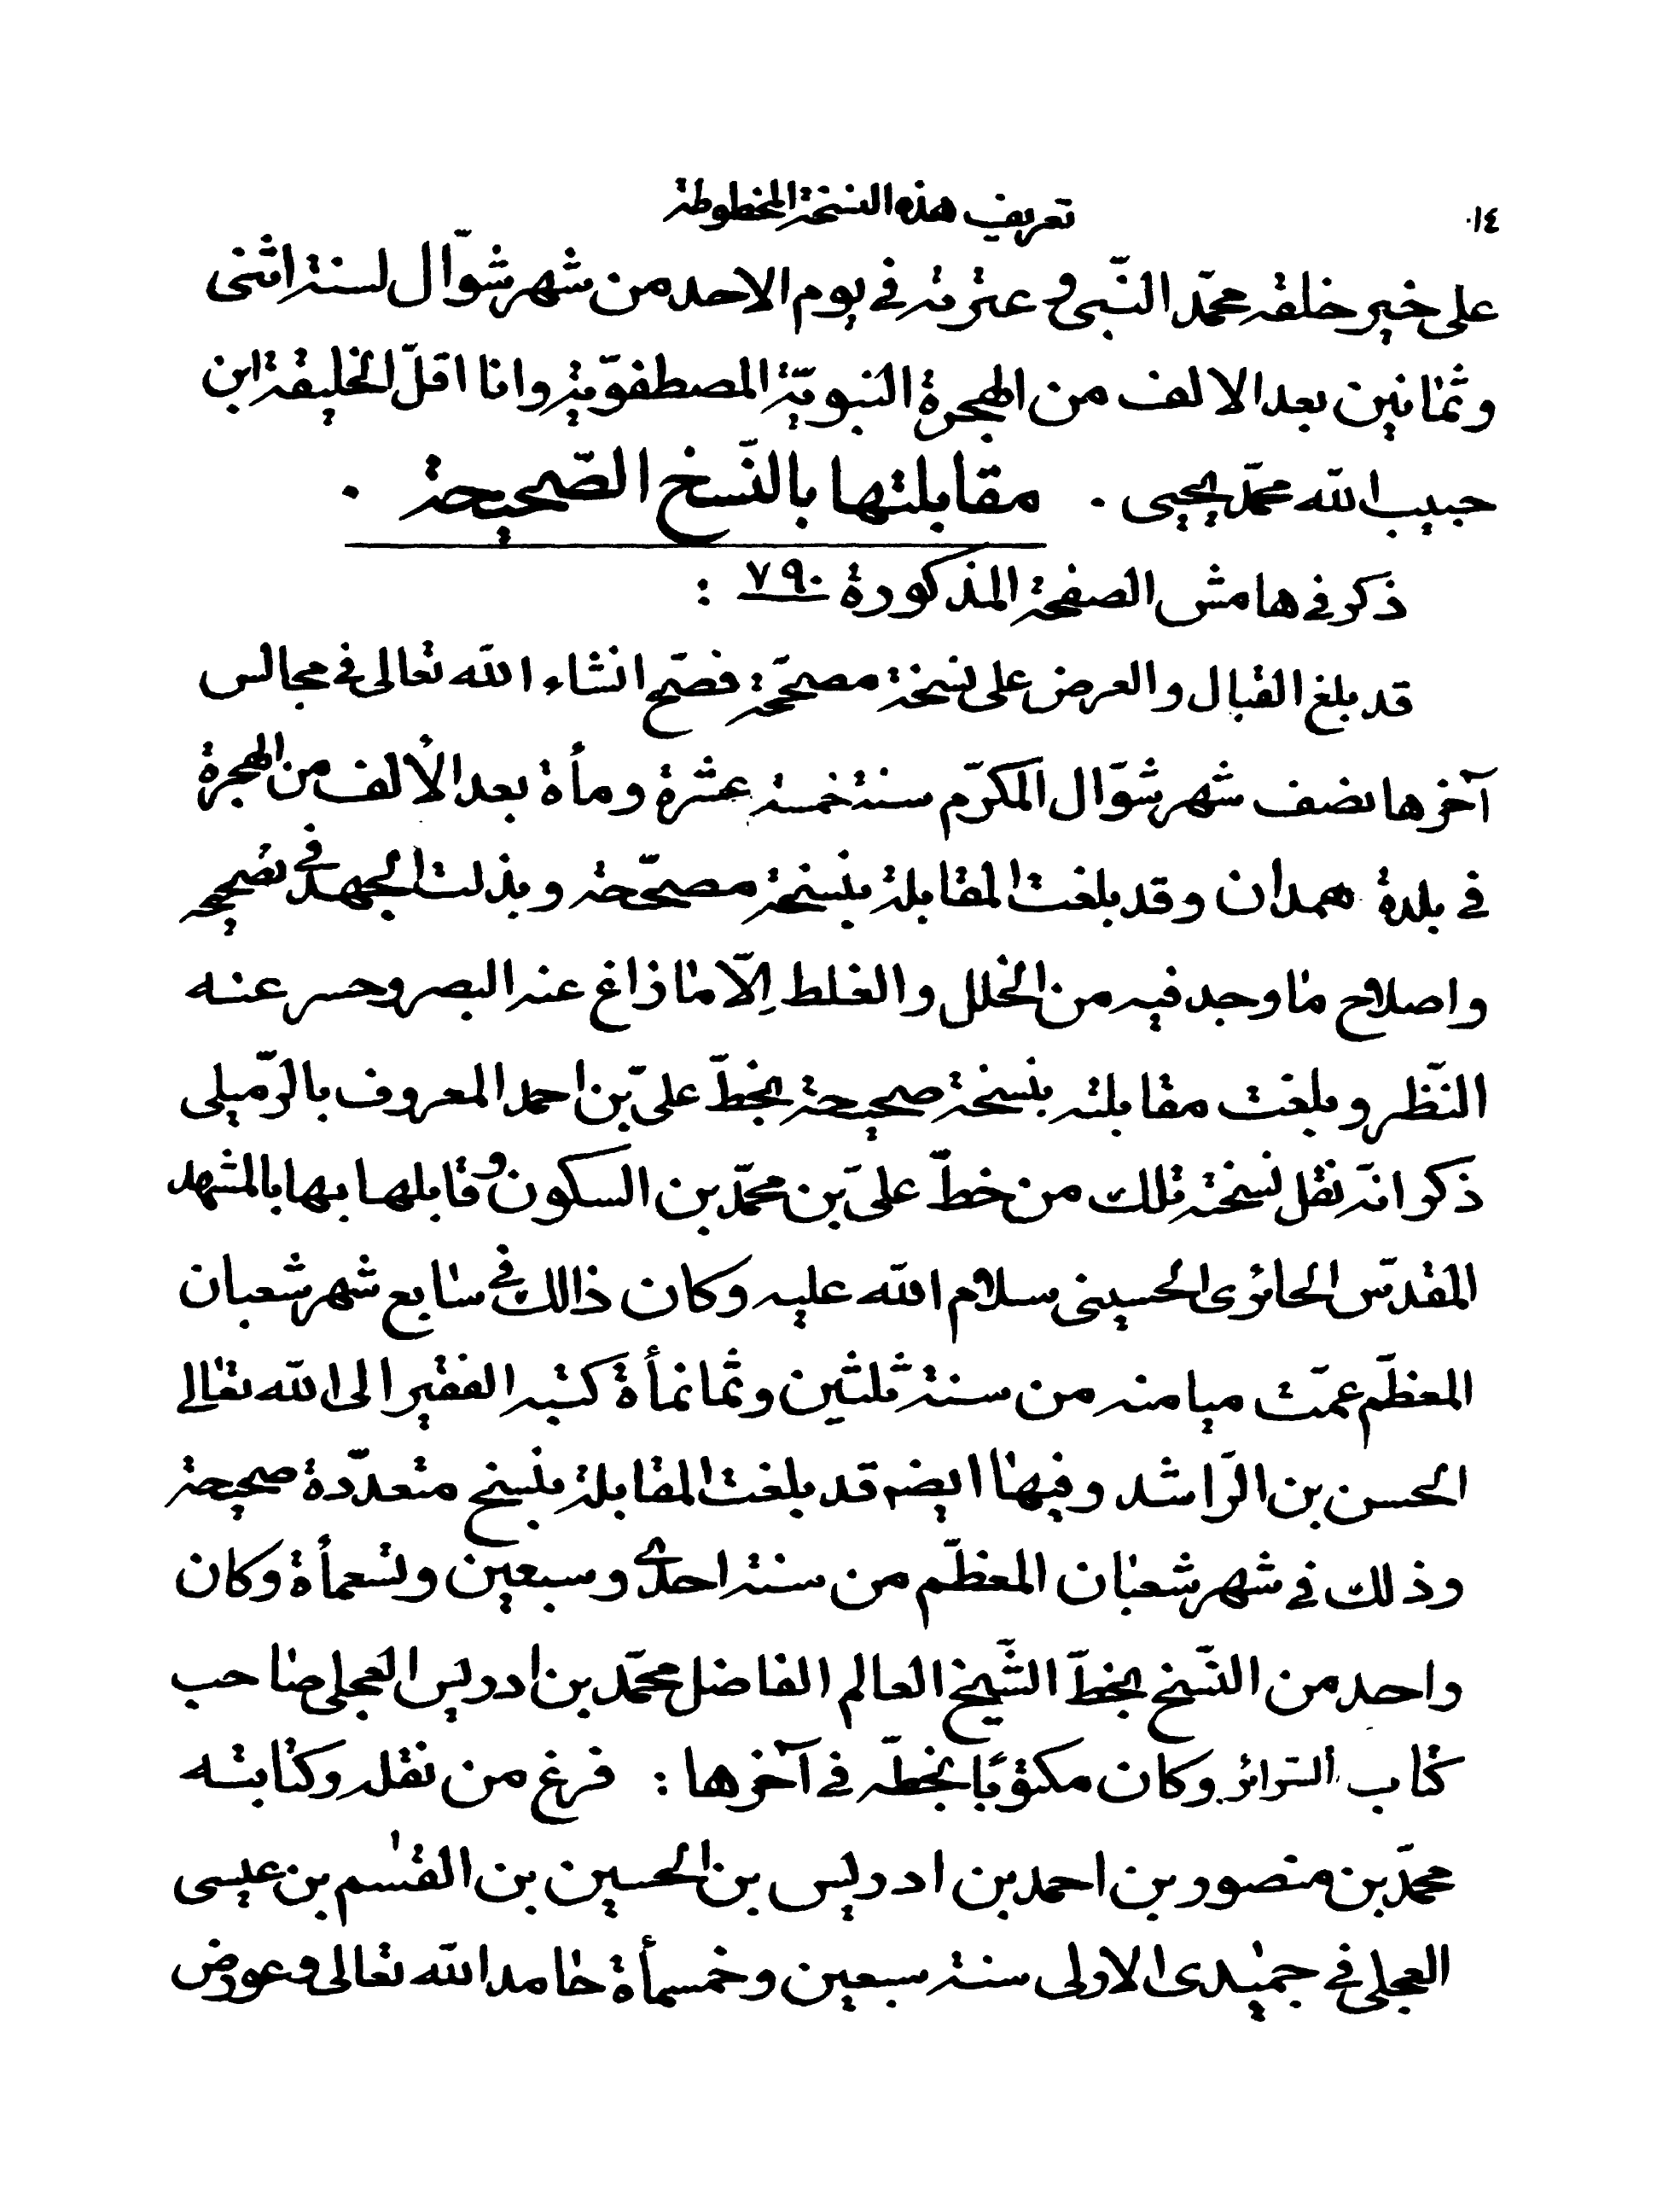 ٠١٤ تعريف هذه النسخة المخطوطة
على خير خلقه محمّد النّبى و عترته في يوم الاحد من شهر شوّال لسنة اثنى
و ثمانين بعد الالف من الهجرة النبويّة المصطفوّية وانا اقلّ الخليقة ابن
حبيب الله محمّد يحيى . مقابلتها بالنّسخ الصّحيحة .
ذكر في هامش الصفحة المذكورة ٧٩٠ :
قد بلغ القبال والعرض على نسخة مصحّحة فصّح انشاء الله تعالى في مجالس
آخرها نصف شهر شوّال المكرّم سنة خمسة عشرة و مأة بعد الألف من الهجرة
في بلدة همدان وقد بلغت المقابلة بنسخة مصحّحة وبذلت الجهد في تصحيحه
واصلاح ما وجد فيه من الخلل والغلط إلّا ما زاغ عنه البصر وحسر عنه
النّظر و بلغت مقابلته بنسخة صحيحة بخطّ علىّ بن احمد المعروف بالرّميلى
ذكر انّه نقل نسخته تلك من خطّ علىّ بن محمّد بن السكون و قابلها بها بالمشهد
المقدّس الحائرى الحسينى سلام الله عليه وكان ذالك في سابع شهر شعبان
المعظّم عمّت ميامنه من سنة ثلثين وثمانمأة كتبه الفقير الى الله تعالى
الحسن بن الرّاشد وفيها ايضه قد بلغت المقابلة بنسخ متعدّدة صحيحة
وذلك في شهر شعبان المعظّم من سنة احدى وسبعين وتسعمأة وكان
واحد من النّسخ بخطّ الشّيخ العالم الفاضل محمّد بن ادريس العجلى صاحب
كتاب السّرائر وكان مكتوبًا بخطّه في آخرها : فرغ من نقله وكتابته
محمّد بن منصور بن احمد بن ادريس بن الحسين بن القسٰم بن عيسى
العجلى في جميدى الاولى سنة سبعين وخمسمأة حامدا لله تعالى و عورض